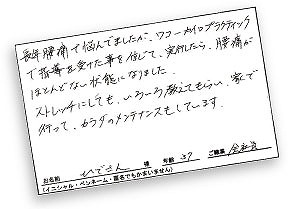 長年腰痛で悩んでましたが、ワコーカイロプラクティック
で指導を受けた事を信じて、実行したら、腰痛が
ほとんどない状態になりました。
ストレッチにしても、いろいろ教えてもらい、家で
行って、カラダのメンテナンスもしています。
お名前 ひでさん 様 年齢 37 ご職業 会社員
(イニシャル・ペンネーム・匿名でもかまいません)